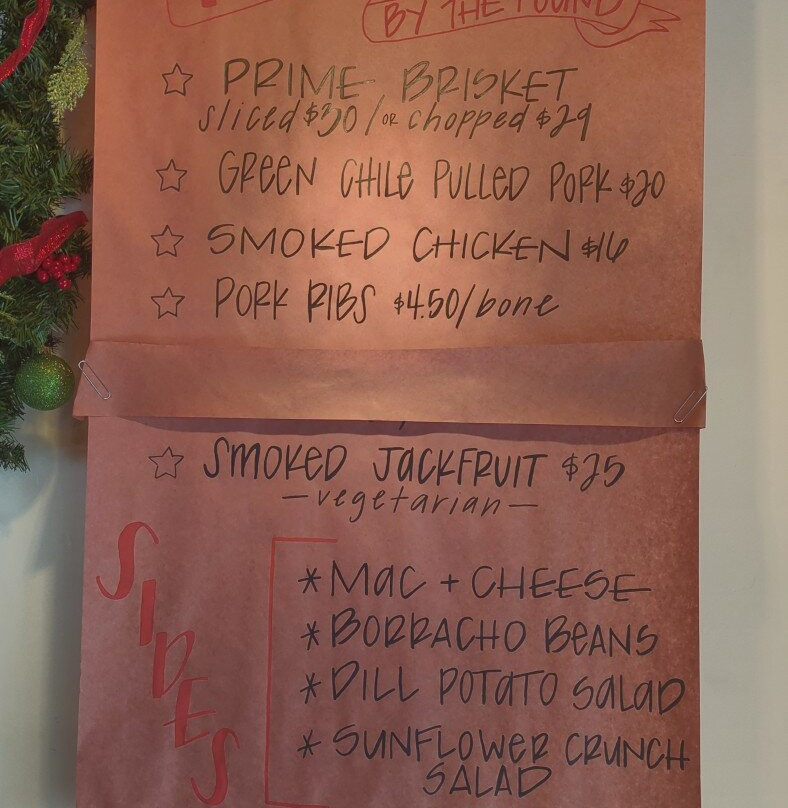 BY THE POUND
PRIME BRISKET
sliced $30/or chopped $29
GREEN CHILE PULLED PORK $20
SMOKED CHICKEN $16
PORK RIBS $4.50/bone
SMOKED JACKFRUIT $25
—vegetarian—
SIDES
*MAC + CHEESE
*BORRACHO BEANS
*DILL POTATO SALAD
*SUNFLOWER CRUNCH
SALAD